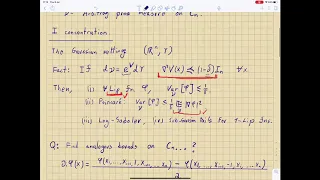 ν- Arbitrary prob measure on Cn.
I concentration.
The Gaussian setting (ℝⁿ, γ)
Fact: If dν = e^V dγ ∇²V(x) ≼ (1-δ) In ∀x
Then, (i) ∀ Lip. fn φ, Var [φ] ≤ 1/δ
(ii) Poincaré: Var [φ] ≤ 1/δ E ‖∇φ‖²
(iii) Log-Sobolev, (iv) Sub-Gaussian tails for 1-Lip fns.
Q: Find analogous bounds on Cn...?
∂ᵢφ(x) = φ(x₁,...,xᵢ₋₁,1,xᵢ₊₁,...xₙ) - φ(x₁,...,xᵢ₋₁,-1,xᵢ...xₙ)
2